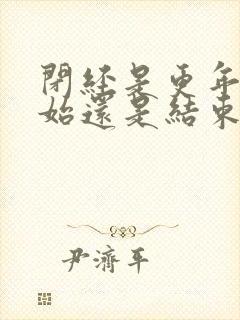 閉經是更年
始還是結束
尹濟平